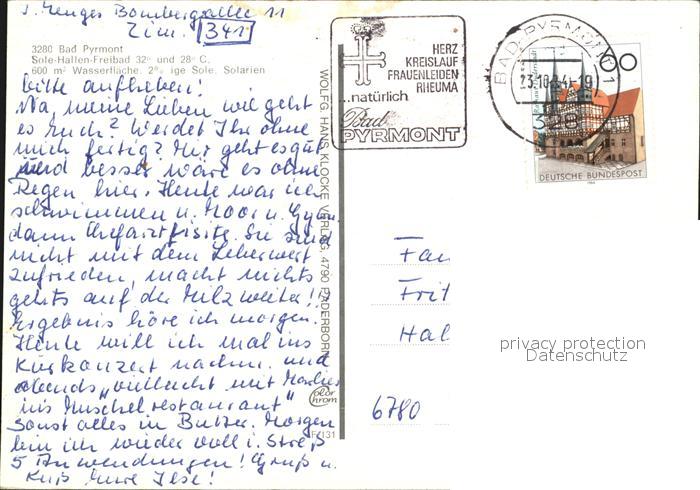 J. Menges Bombergallee 11
Zim. 341
3280 Bad Pyrmont
Sole-Hallen-Freibad 32° und 28° C.
600 m² Wasserfläche. 2% ige Sole, Solarien
bitte aufheben!
Na, meine Lieben wie geht
es Euch? Werdet Ihr ohne
mich fertig? Mir geht es gut
und besser wäre es ohne
Regen hier. Heute war ich
schwimmen u. Moor u. Gym.
dann Chefarztfisite. Sie sind
nicht mit dem Leberwert
zufrieden, macht nichts
gehts auf der Milz weiter!
Ergebnis höre ich morgen.
Heute will ich mal ins
Kurkonzert nachm. und
abends "vielleicht mit Marlies
ins Muschelrestaurant"
Sonst alles in Butter. Morgen
bin ich wieder voll i. Streß
5 Anwendungen! Gruß u.
Kuß Eure Ilse!
WOLFG. HANS KLOCKE VERLAG, 4790 PADERBORN
color chrom
HERZ
KREISLAUF
FRAUENLEIDEN
RHEUMA
...natürlich
Bad
PYRMONT
BAD PYRMONT 1
23.10.84-19
328
DEUTSCHE BUNDESPOST
1984
Fan
Frit
Hal
6780
privacy protection
Datenschutz